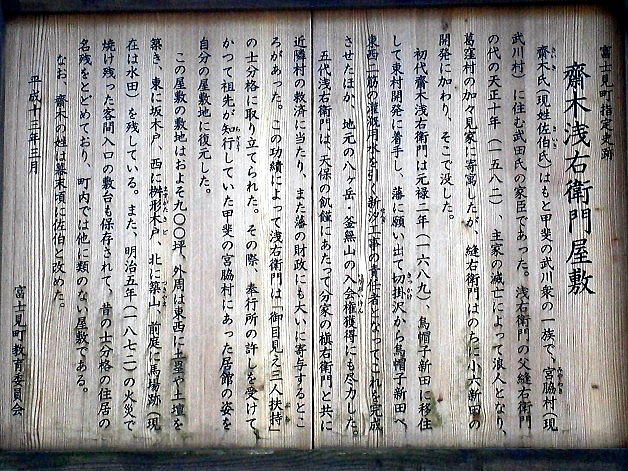 富士見町指定史跡
齋木浅右衛門屋敷
齋木氏（現姓佐伯氏）はもと甲斐の武川衆の一族で、宮脇村（現
武川村）に住む武田氏の家臣であった。浅右衛門の父縫右衛門
の代の天正十年（一五八二）、主家の滅亡によって浪人となり、
葛窪村の加々見家に寄寓したが、縫右衛門はのちに小六新田の
開発に加わり、そこで没した。
初代齋木浅右衛門は元禄二年（一六八九）、烏帽子新田に移住
して東村開発に着手し、藩に願い出て切掛沢から烏帽子新田へ
東西二筋の灌漑用水を引く新汐工事の責任者となってこれを完成
させたほか、地元の八ヶ岳、釜無山の入会権獲得にも尽力した。
五代浅右衛門は、天保の飢饉にあたって分家の槙右衛門と共に
近隣村の救済に当たり、また藩の財政にも大いに寄与するとこ
ろがあった。この功績によって浅右衛門は「御目見え三人扶持」
の士分格に取り立てられた。その際、奉行所の許しを受けて、
かつて祖先が知行していた甲斐の宮脇村にあった居館の姿を
自分の屋敷地に復元した。
この屋敷の敷地はおよそ九〇〇坪、外周は東西に土塁や土壇を
築き、東に坂木戸、西に桝形木戸、北に築山、前庭に馬場跡（現
在は水田）を残している。また、明治五年（一八七二）の火災で
焼け残った客間入口の敷台も保存されて、昔の士分格の住居の
名残をとどめており、町内では他に類のない屋敷である。
なお、齋木の姓は幕末頃に佐伯と改めた。
平成十三年三月
富士見町教育委員会